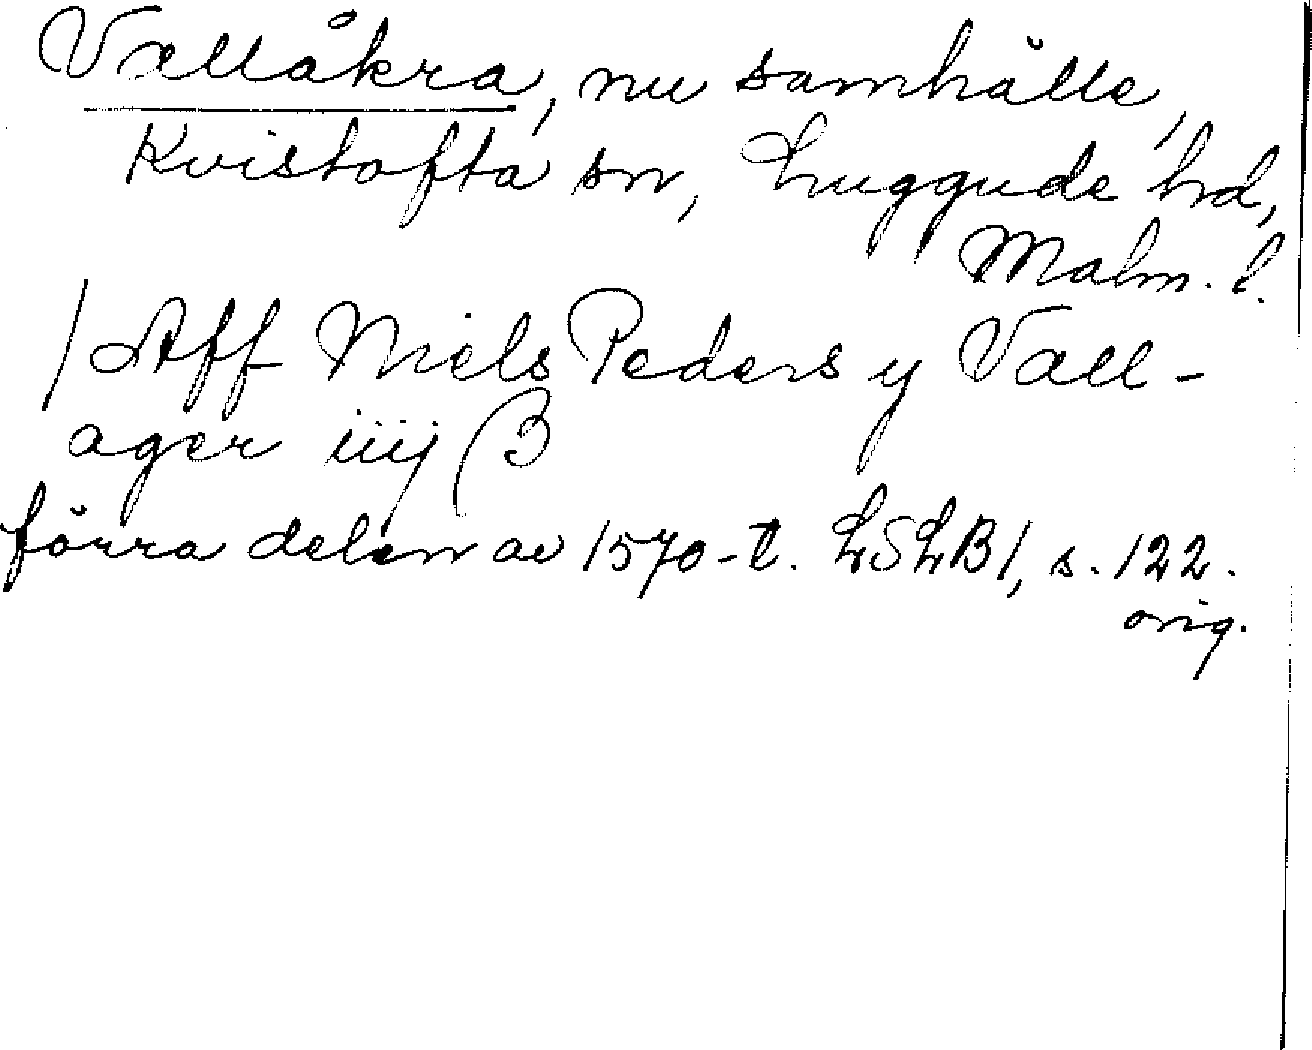 Vallåkra, nu samhälle,
Kvistofta sn, Luggude hd,
Malm. l.
/ Aff Niels Peders y Vall-
ager iiij β
förra delen av 1570-t. LSLB1, s. 122.
orig.